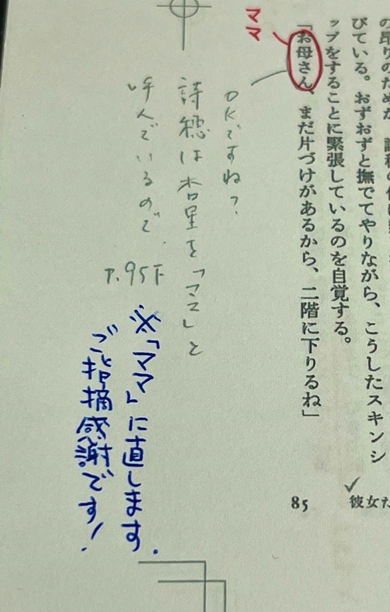 びている。おずおずと撫でてやりながら、こうしたスキンシ
ップをすることに緊張しているのを自覚する。
「お母さん、まだ片づけがあるから、二階に下りるね」
ママ
OKですね?
詩穂は杏星を「ママ」と
呼んでいるので、
P.95下
※「ママ」に直します。
ご指摘感謝です!
85
彼女た